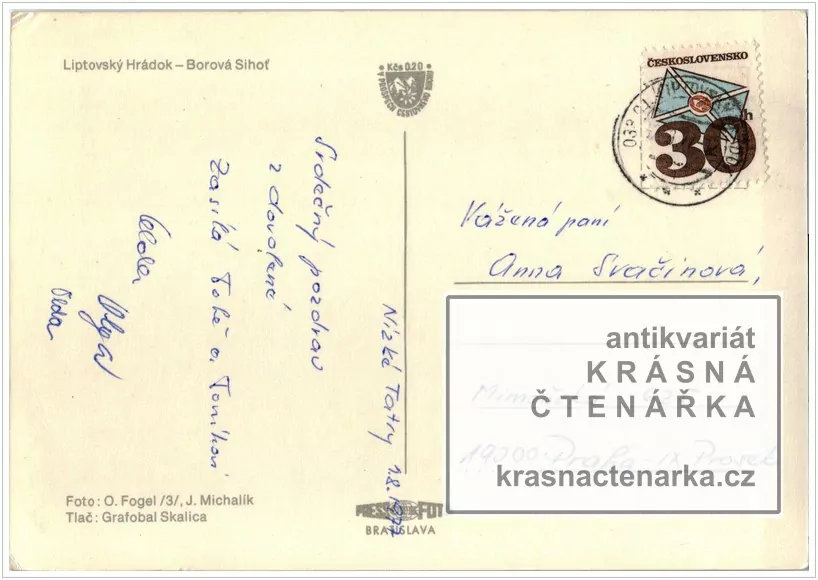 Liptovský Hrádok – Borová Sihoť
Kčs 0.20
V PROSPECH CESTOVNÉHO RUCHU
ČESKOSLOVENSKO
30h
Nízké Tatry 1.8.1977
Srdečný pozdrav
z dovolené
zasílá Tobě a Toníkovi
Olga
Olda
Vážená paní
Anna Svačinová,
19000 Praha-IX Prosek
antikvariát
KRÁSNÁ
ČTENÁŘKA
krasnactenarka.cz
Foto: O. Fogel /3/, J. Michalík
Tlač: Grafobal Skalica
PRESSFOTO
BRATISLAVA